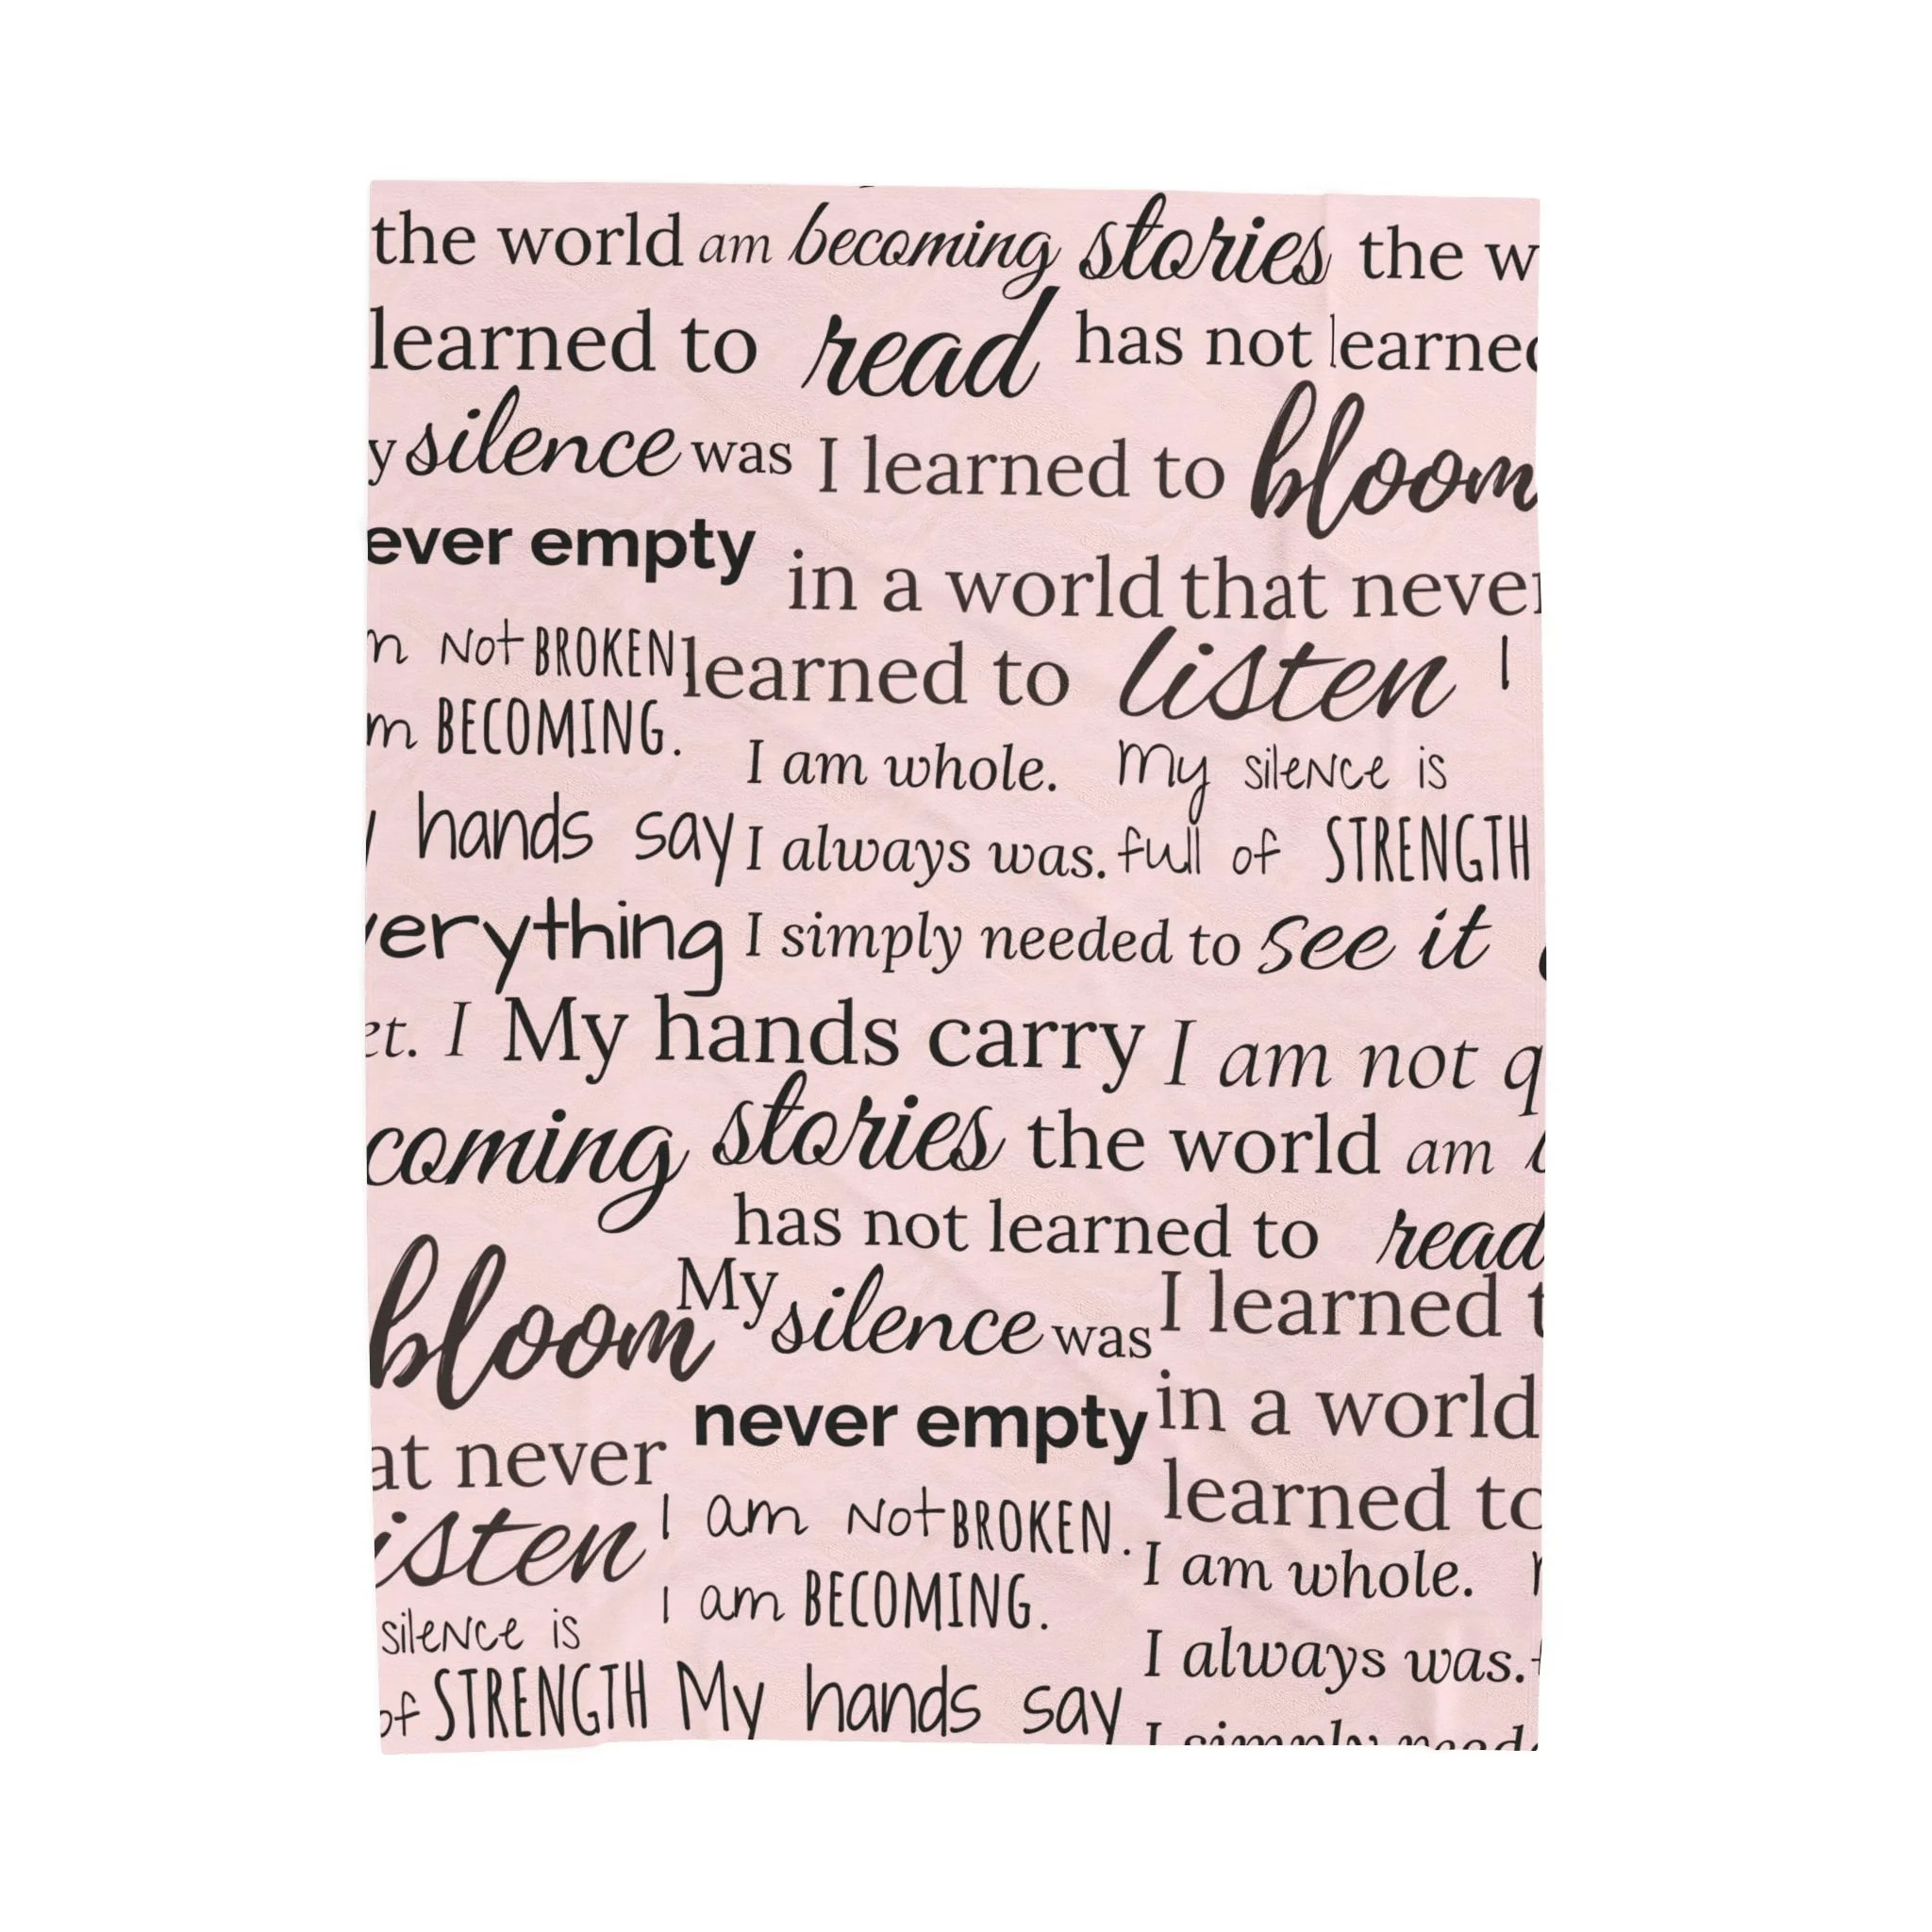 the world am becoming stories the w
learned to read has not learned
y silence was I learned to bloom
ever empty in a world that never
m Not BROKEN. learned to listen I
m BECOMING. I am whole. My silence is
y hands say I always was. full of STRENGTH
verything I simply needed to see it
et. I My hands carry I am not q
coming stories the world am
has not learned to read
bloom My silence was I learned t
never empty in a world
at never learned to
I am Not BROKEN.
isten I am whole.
I am BECOMING.
silence is I always was.
of STRENGTH My hands say I simply neede